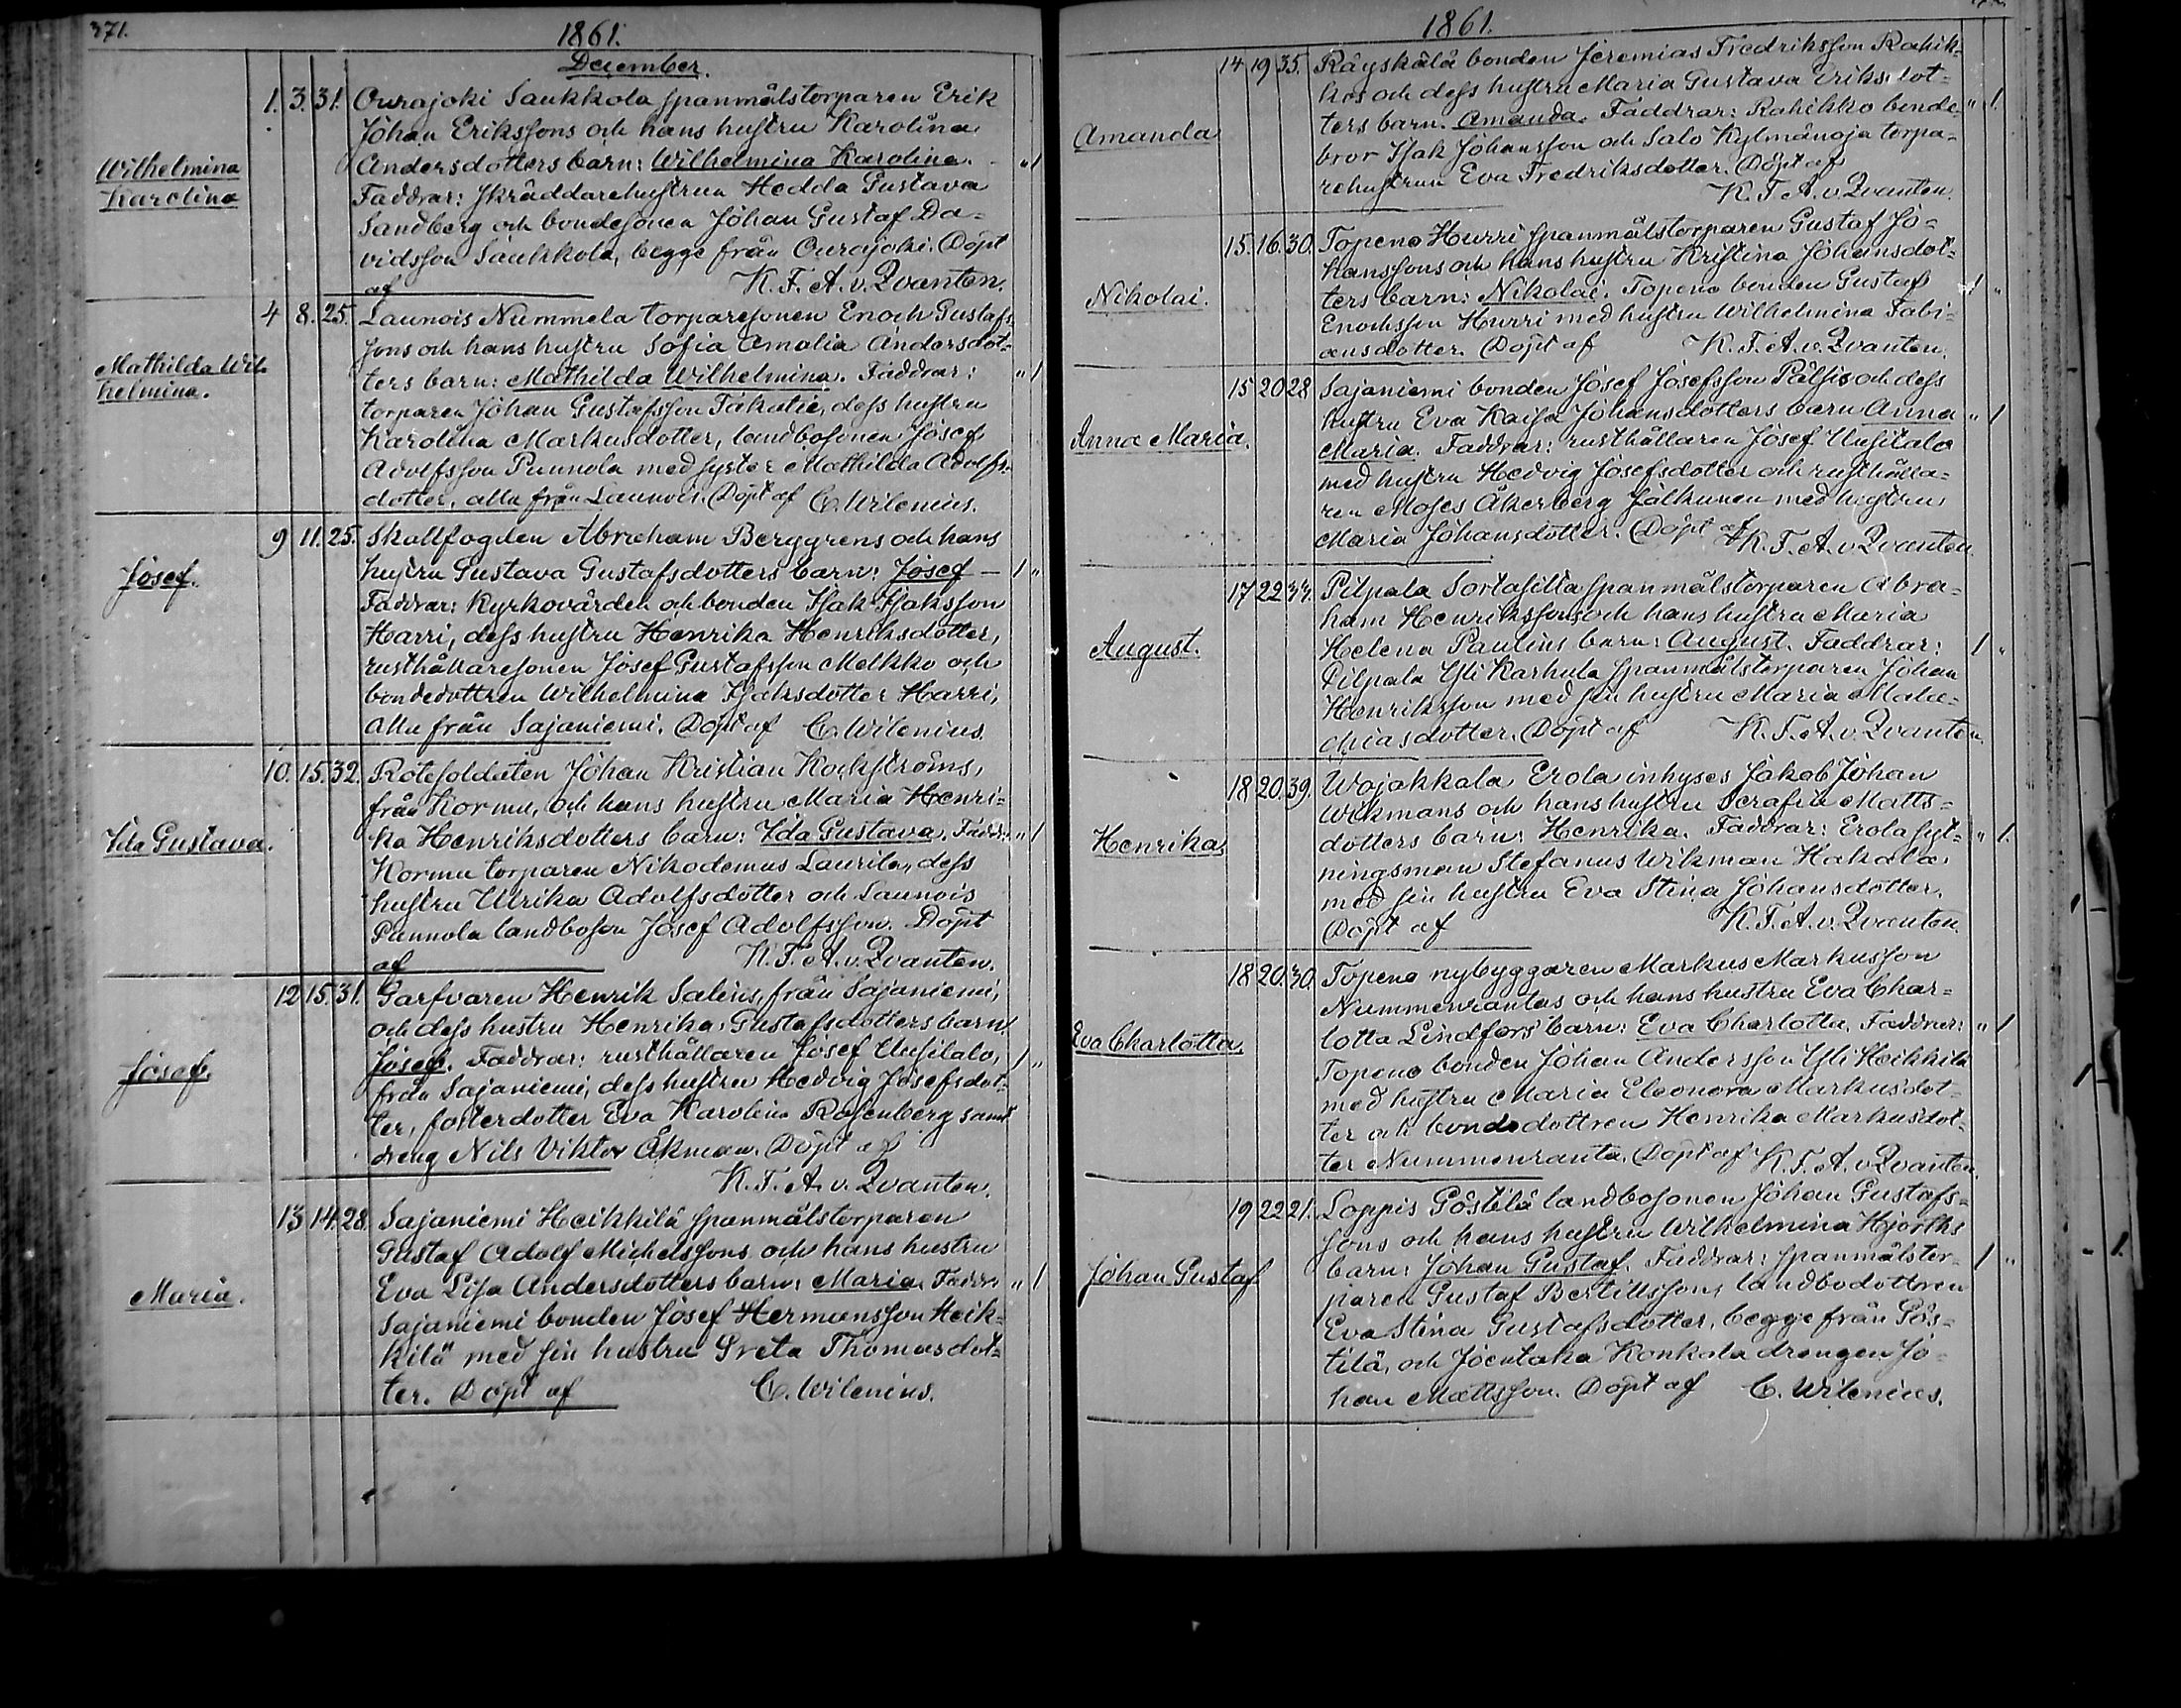 371.
1861.
December.
Wilhelmina
Karolina
1. 3. 31. Ourajoki Saukkola spanmålstorparen Erik
Johan Erikssons och hans hustru Karolina
Andersdotters barn: Wilhelmina Karolina. " 1
Faddrar: skräddarehustrun Hedda Gustava
Sandberg och bondesonen Johan Gustaf Da-
vidsson Saukkola, begge från Ourajoki. Döpt
af K. F. A. v. Qvanten.
Mathilda Wil-
helmina.
4 8. 25. Launois Nummela torparesonen Enoch Gustafs-
sons och hans hustru Sofia Amalia Andersdot-
ters barn: Mathilda Wilhelmina. Faddrar: " 1
torparen Johan Gustafsson Takatie, dess hustru
Karolina Markusdotter, landbosonen Josef
Adolfsson Punnola med syster Mathilda Adolfs-
dotter, alla från Launois. Döpt af C. Wilenius.
Josef.
9 11. 25. Skallfogden Abraham Berggrens och hans
hustru Gustava Gustafsdotters barn: Josef — 1 "
Faddrar: Kyrkovärden och bonden Isak Isaksson
Harri, dess hustru Henrika Henriksdotter,
rusthållaresonen Josef Gustafsson Melkko och
bondedottren Wilhelmina Isaksdotter Harri,
alla från Sajaniemi. Döpt af C. Wilenius.
Ida Gustava.
10. 15. 32. Rotesoldaten Johan Kristian Kockströms,
från Kormu, och hans hustru Maria Henri-
ka Henriksdotters barn: Ida Gustava. Faddr: " 1
Kormu torparen Nikodemus Laurila, dess
hustru Ulrika Adolfsdotter och Launois
Punnola landboson Josef Adolfsson. Döpt
af K. F. A. v. Qvanten.
Josef.
12 15. 31. Garfvaren Henrik Salins, från Sajaniemi,
och dess hustru Henrika Gustafsdotters barn
Josef. Faddrar: rusthållaren Josef Uusitalo, 1 "
från Sajaniemi, dess hustru Hedvig Josefsdot-
ter, fosterdotter Eva Karolina Rosenberg samt
dreng Nils Viktor Åkman. Döpt af
K. F. A. v. Qvanten.
Maria.
13 14. 28. Sajaniemi Heikkilä spanmålstorparen
Gustaf Adolf Michelssons och hans hustru
Eva Lisa Andersdotters barn: Maria. Faddr: " 1
Sajaniemi bonden Josef Hermansson Heik-
kilä med sin hustru Greta Thomasdot-
ter. Döpt af C. Wilenius.
1861.
Amanda
14 19 35. Räyskälä bonden Jeremias Fredriksson Rahik-
kos och dess hustru Maria Gustava Eriksdot-
ters barn. Amanda. Faddrar: Rahikko bonde- " 1
bror Isak Johansson och Salo Kylmänoja torpa-
rehustrun Eva Fredriksdotter. Döpt af
K. F. A. v. Qvanten.
Nikolai.
15. 16. 30. Topeno Hurri spanmålstorparen Gustaf Jo-
hanssons och hans hustru Kristina Johansdot-
ters barn: Nikolai. Topeno bonden Gustaf 1 "
Enochsson Hurri med hustru Wilhelmina Fabi-
ansdotter. Döpt af K. F. A. v. Qvanten.
Anna Maria.
15 20 28 Sajaniemi bonden Josef Josefsson Pälsis och dess
hustru Eva Kaisa Johansdotters barn Anna " 1
Maria. Faddrar: rusthållaren Josef Uusitalo
med hustru Hedvig Josefsdotter och rusthålla-
ren Moses Åkerberg Jälkunen med hustru
Maria Johansdotter. Döpt af K. F. A. v. Qvanten.
August.
17 22 34. Pilpala Sortasilta spanmålstorparen Abra-
ham Henrikssons och hans hustru Maria
Helena Paulins barn: August. Faddrar: 1 "
Pilpala Yli Karhula spanmålstorparen Johan
Henriksson med sin hustru Maria Mala-
chiasdotter. Döpt af K. F. A. v. Qvanten.
Henrika
18 20. 39. Wojakkala Erola inhyses Jakob Johan
Wikmans och hans hustru Serafia Matts-
dotters barn: Henrika. Faddrar: Erola syt- " 1.
ningsman Stefanus Wikman Hakala
med sin hustru Eva Stina Johansdotter.
Döpt af K. F. A. v. Qvanten.
Eva Charlotta.
18 20. 30. Topeno nybyggaren Markus Markusson
Nummenrantas och hans hustru Eva Char-
lotta Lindfors barn: Eva Charlotta. Faddrar: " 1
Topeno bonden Johan Andersson Yli Heikkilä
med hustru Maria Eleonora Markusdot-
ter och bondedottren Henrika Markusdot-
ter Nummenranta. Döpt af K. F. A. v. Qvanten.
Johan Gustaf
19 22 21. Loppis Göstilä landbosonen Johan Gustafs-
sons och hans hustru Wilhelmina Hjorths
barn: Johan Gustaf. Faddrar: spanmålstor- 1 "
paren Gustaf Bertillsson, landbodottren
Eva Stina Gustafsdotter, begge från Gös-
tilä, och Joentaka Konkala drengen Jo-
han Mattsson. Döpt af C. Wilenius.